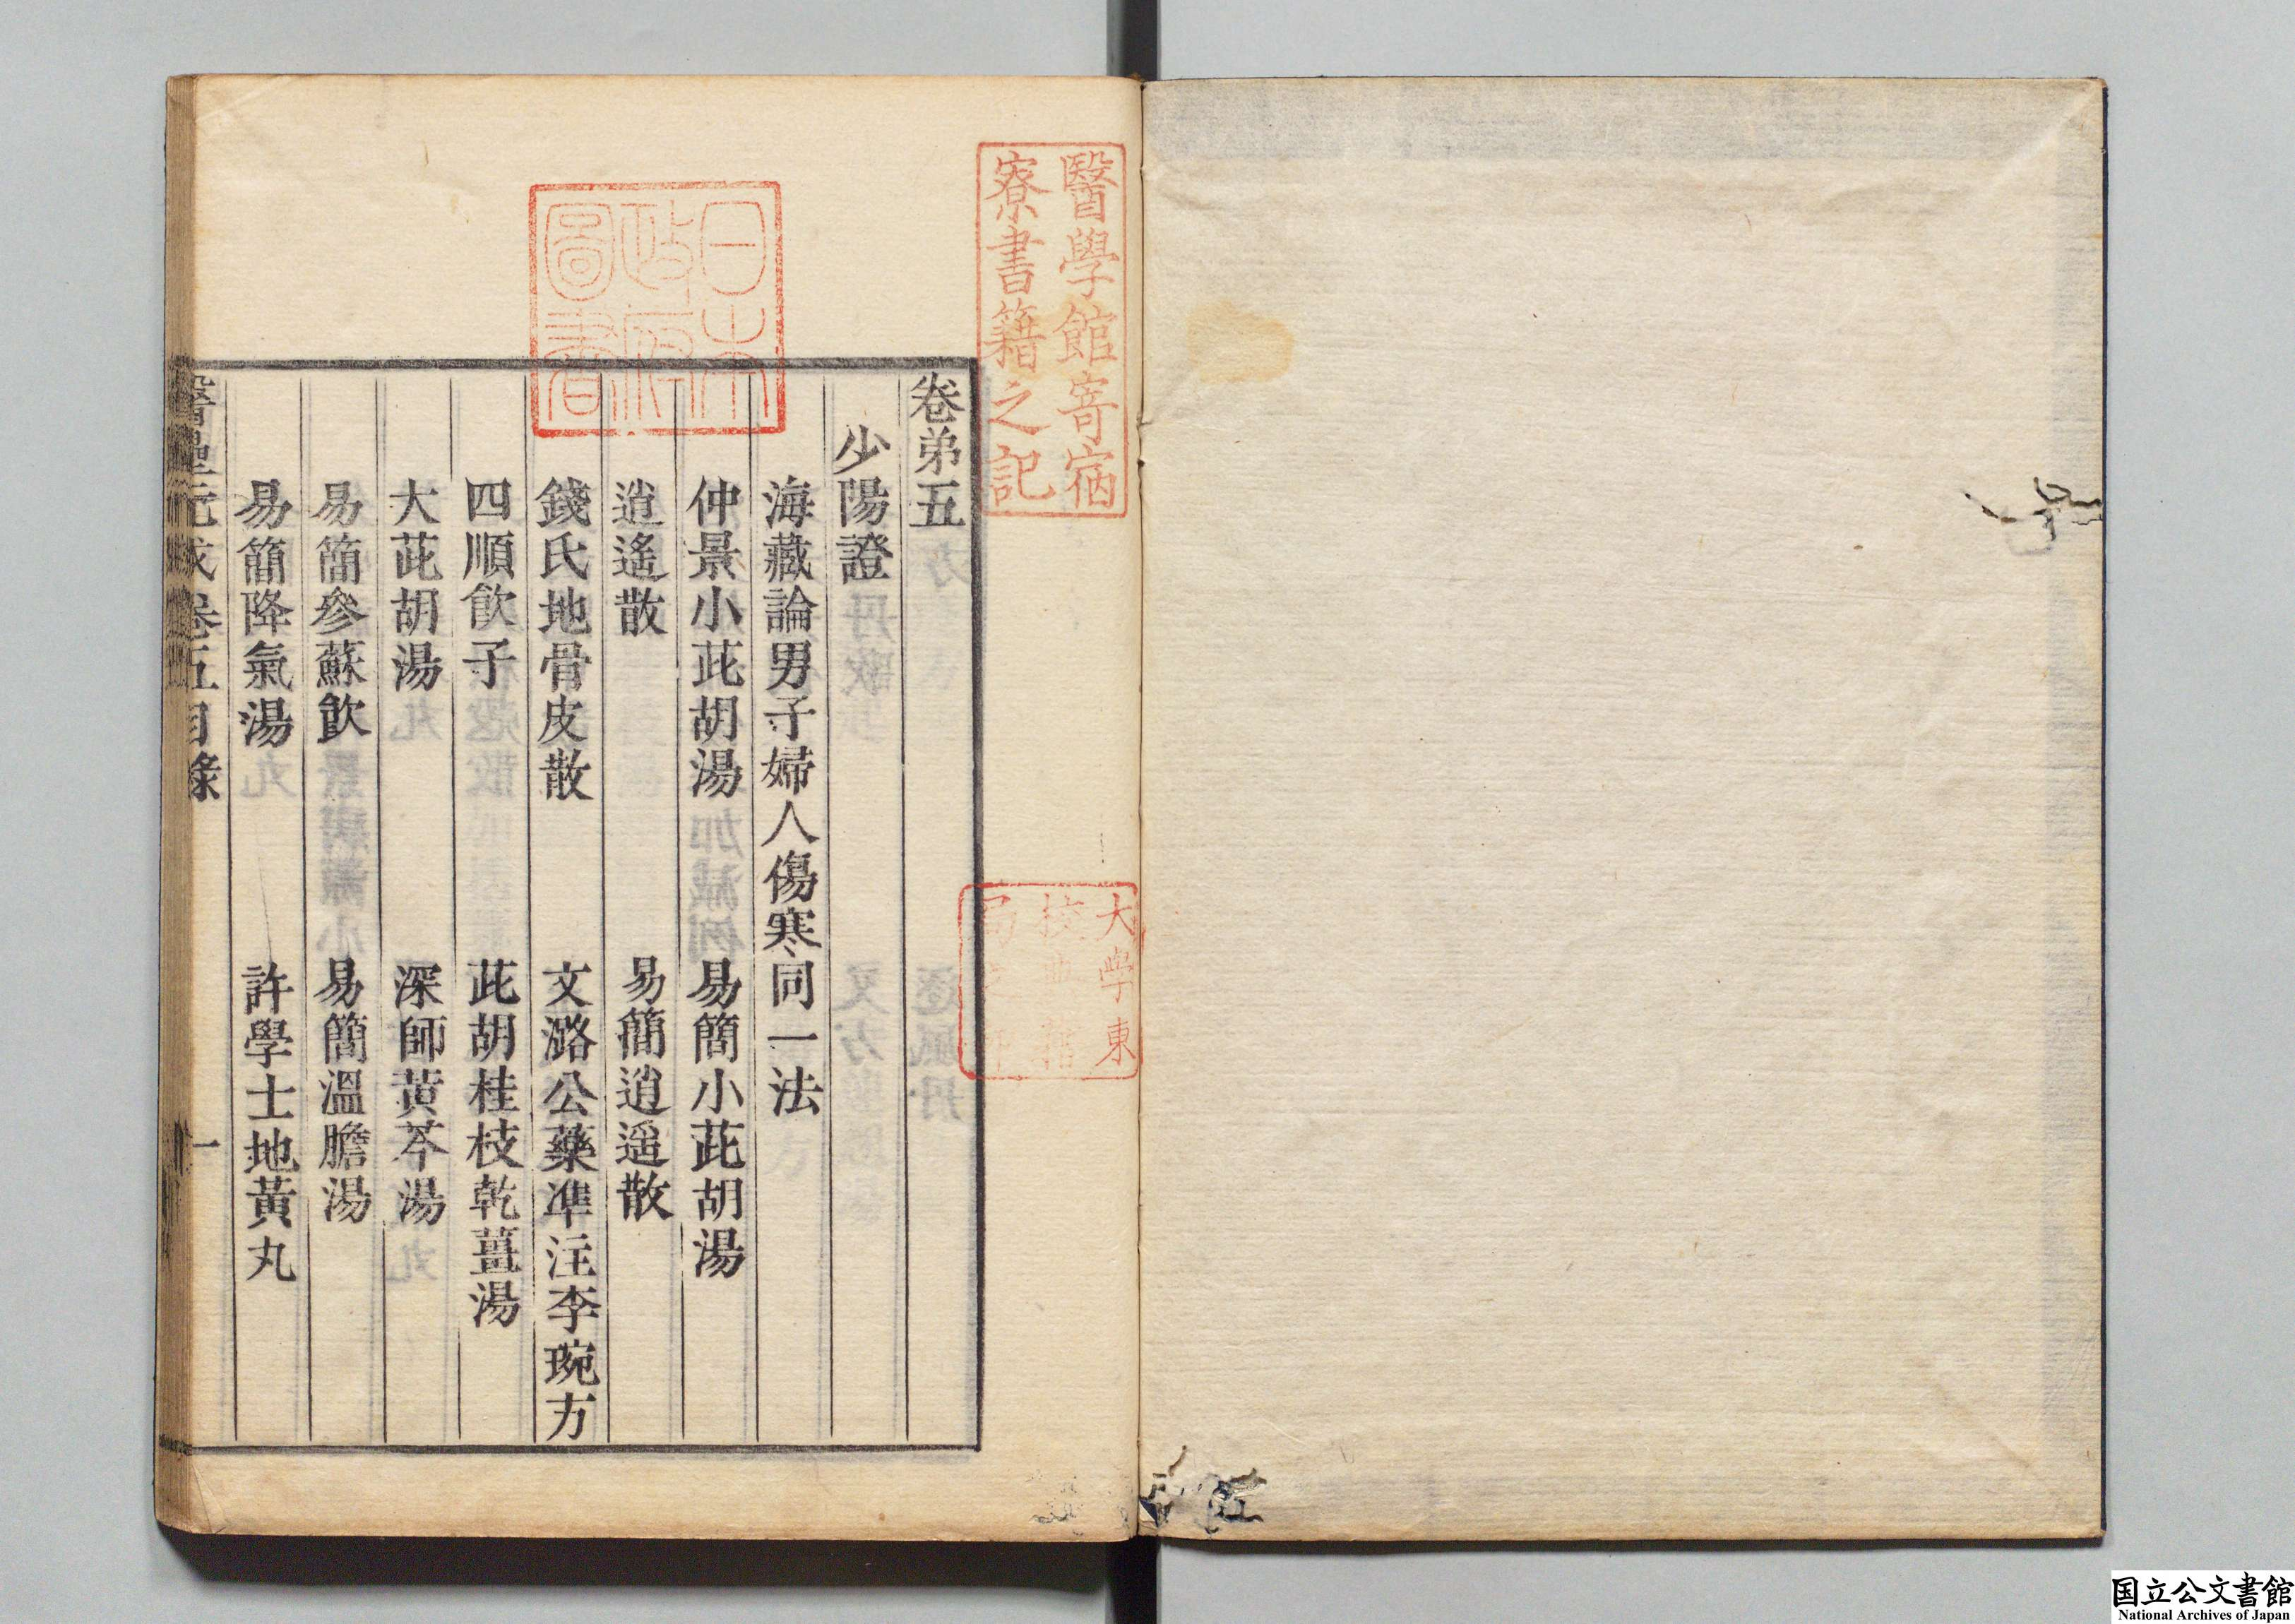 醫學館寄宿
寮書籍之記
日本
政府
圖書
大學東
卷弟五
少陽證
海藏論男子婦人傷寒同一法
仲景小茈胡湯 易簡小茈胡湯
逍遙散 易簡逍遥散
錢氏地骨皮散 文潞公藥準注李琬方
四順飲子 茈胡桂枝乾薑湯
大茈胡湯 深師黃芩湯
易簡參蘇飲 易簡溫膽湯
易簡降氣湯 許學士地黃丸
醫壘元戎 卷五目錄 一
国立公文書館
National Archives of Japan